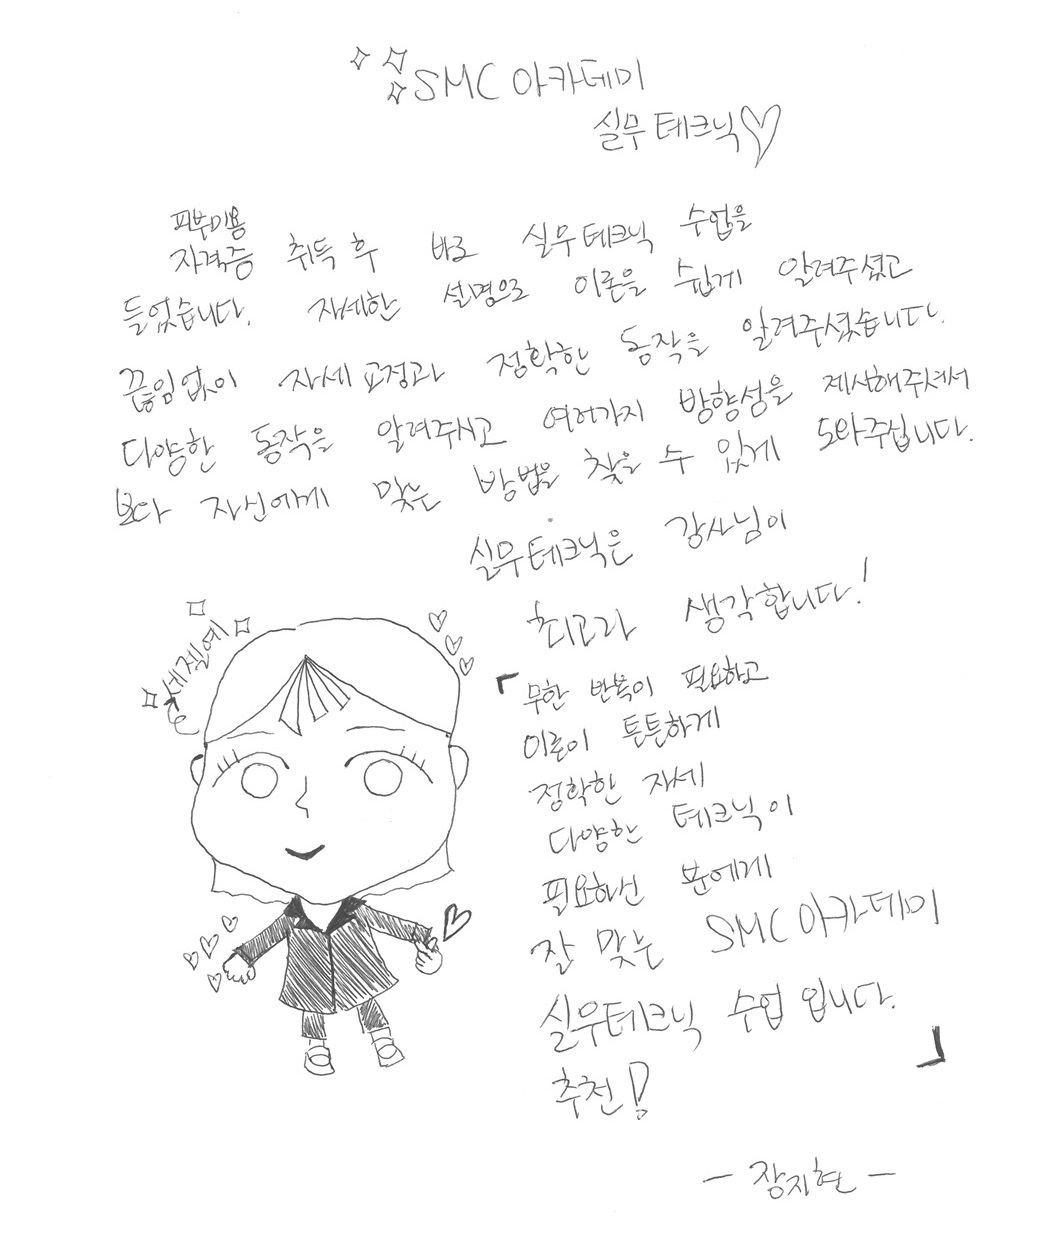 SMC 아카데미
실무 테크닉
피부미용
자격증 취득 후 바로 실무 테크닉 수업을
들었습니다. 자세한 설명으로 이론을 쉽게 알려주셨고
끊임없이 자세 교정과 정확한 동작을 알려주셨습니다.
다양한 동작을 알려주시고 여러가지 방향성을 제시해주셔서
보다 자신에게 맞는 방법을 찾을 수 있게 도와주십니다.
실무테크닉은 강사님이
최고라 생각합니다!
세젤예
「무한 반복이 필요하고
이론이 튼튼하게
정확한 자세
다양한 테크닉이
필요하신 분에게
잘 맞는 SMC 아카데미
실무테크닉 수업 입니다.
추천!」
- 장지현 -